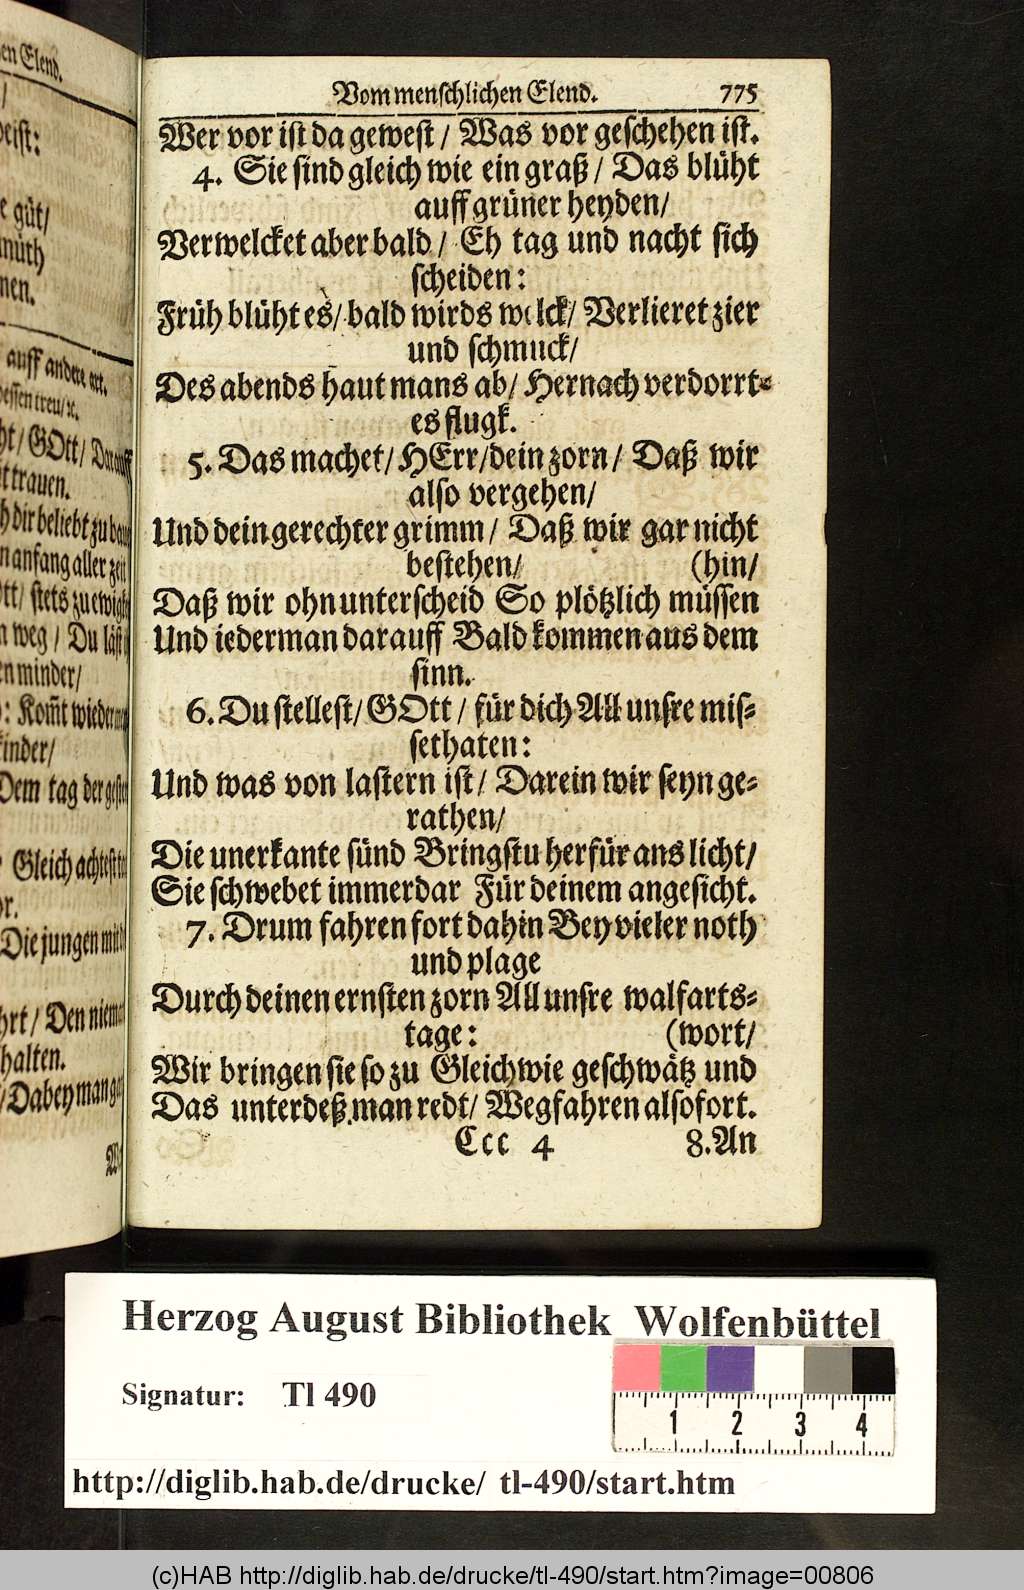 en Elend.
eist:
e güt/
müth
nen.
auff andere art.
dessen treu/ꝛc.
ht/ GOtt/ Darauff
trauen.
h dir beliebt zu
n anfang aller zeit
tt/ stets zu ewig
n weg / Du läst
en minder/
: Kom̃t wieder
kinder/
Dem tag der gestern
Gleich achtest
or.
Die jungen mit
hrt / Den niem
halten.
/ Dabey man
Vom menschlichen Elend. 775
Wer vor ist da gewest / Was vor geschehen ist.
4. Sie sind gleich wie ein graß / Das blüht
auff grüner heyden/
Verwelcket aber bald / Eh tag und nacht sich
scheiden:
Früh blüht es/ bald wirds welck/ Verlieret zier
und schmuck/
Des abends haut mans ab/ Hernach verdorrt-
es flugk.
5. Das machet/ HErr/dein zorn / Daß wir
also vergehen/
Und dein gerechter grimm / Daß wir gar nicht
bestehen/ (hin/
Daß wir ohn unterscheid So plötzlich müssen
Und iederman darauff Bald kommen aus dem
sinn.
6. Du stellest/ GOtt / für dich All unsre mis-
sethaten:
Und was von lastern ist/ Darein wir seyn ge-
rathen/
Die unerkante sünd Bringstu herfür ans licht/
Sie schwebet immerdar Für deinem angesicht.
7. Drum fahren fort dahin Bey vieler noth
und plage
Durch deinen ernsten zorn All unsre walfarts-
tage: (wort/
Wir bringen sie so zu Gleich wie geschwätz und
Das unterdeß man redt/ Wegfahren also fort.
Ccc 4 8. An
Herzog August Bibliothek Wolfenbüttel
Signatur: Tl 490
1 2 3 4
http://diglib.hab.de/drucke/ tl-490/start.htm
(c)HAB http://diglib.hab.de/drucke/tl-490/start.htm?image=00806